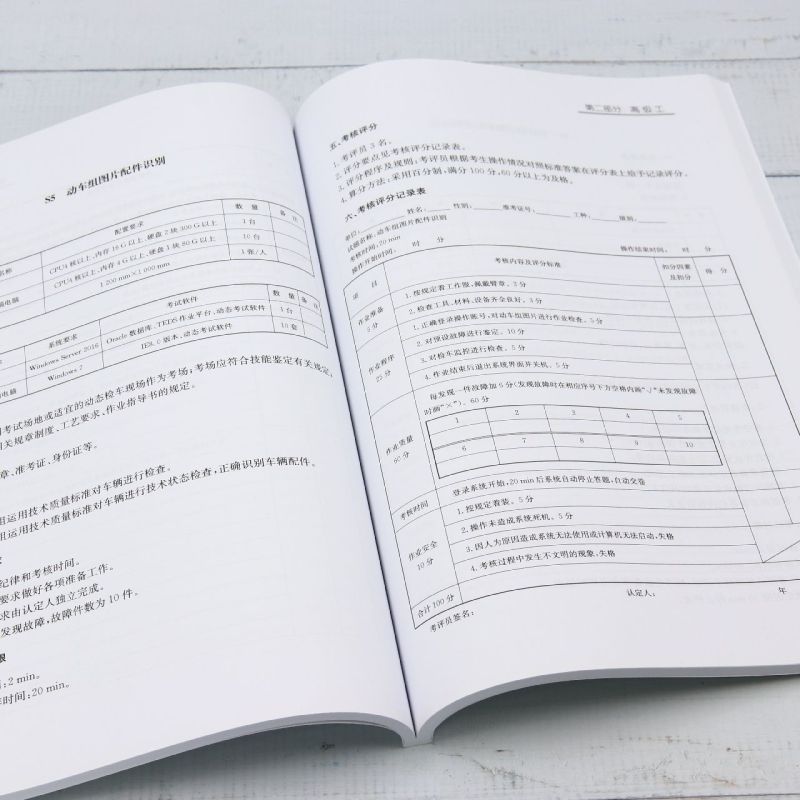 S5 动车组图片配件识别
名称
配置要求
数 量
备 注
CPU4 核以上,内存 16 G 以上,硬盘 2 块 300 G 以上
1 台
CPU4 核以上,内存 4 G 以上,硬盘 1 块 80 G 以上
10 台
电脑
1 200 mm×1 000 mm
1 张/人
系统要求
考试软件
数 量
备 注
Windows Server 2016
Oracle 数据库、TEDS 作业平台、动态考试软件
1 台
电脑
Windows 7
IE8.0 版本、动态考试软件
10 套
考试场地或适宜的动态检车现场作为考场;考场应符合技能鉴定有关规定,
相关规章制度、工艺要求、作业指导书的规定。
章、准考证、身份证等。
组运用技术质量标准对车辆进行检查。
组运用技术质量标准对车辆进行技术状态检查,正确识别车辆配件。
求
纪律和考核时间。
要求做好各项准备工作。
求由认定人独立完成。
发现故障,故障件数为 10 件。
限
:2 min。
时间:20 min。
第二部分 高 级 工
五、考核评分
1. 考评员 3 名。
2. 评分要点见考核评分记录表。
3. 评分程序及规则:考评员根据考生操作情况对照标准答案在评分表上给予记录评分。
4. 算分方法:采用百分制,满分 100 分,60 分以上为及格。
六、考核评分记录表
单位: 姓名: 性别: 准考证号: 工种: 级别:
试题名称:动车组图片配件识别
考核时间:20 min
操作开始时间: 时 分 操作结束时间: 时 分
项 目
考核内容及评分标准
扣分因素及扣分
得 分
作业准备
5 分
1. 按规定着工作服,佩戴臂章。3 分
2. 检查工具、材料、设备齐全良好。3 分
作业程序
25 分
1. 正确登录操作账号,对动车组图片进行作业检查。5 分
2. 对预设故障进行鉴定。10 分
3. 对检车监控进行检查。5 分
4. 作业结束后退出系统界面开关机。5 分
作业质量
60 分
每发现一件故障加 6 分(发现故障时在相应序号下方空格内画“√”未发现故障
时画“×”)。60 分
1 2 3 4 5
6 7 8 9 10
考核时间
登录系统开始,20 min 后系统自动停止答题,自动交卷
作业安全
10 分
1. 按规定着装。5 分
2. 操作未造成系统死机。5 分
3. 因人为原因造成系统无法使用或计算机无法启动,失格
4. 考核过程中发生不文明的现象,失格
合计 100 分
考评员签名: 认定人: 年